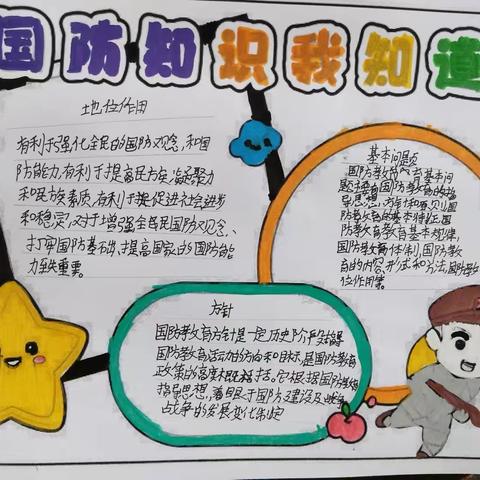 国防知识我知道
地位作用
有利于强化全民的国防观念,和国
防能力,有利于提高民族凝聚力
和民族素质,有利于促进社会进步
和稳定,对于增强全民国防观念、
打牢国防基础,提高国家的国防能
力至关重要。
基本问题
国防教育的基本问
题
指
导思想,方针和原则,国
防教育的基本特征,国
防教育教育基本规律,
国防教育体制,国防教
育的内容,形式和方法,国防教
位作用等。
方针
国防教育方针是一定历史阶段指导
国防教育活动的方向和目标,是国防教育
政策的高度概括。它根据国防
指导思想,着眼于国防建设及
战争的发展变化制定